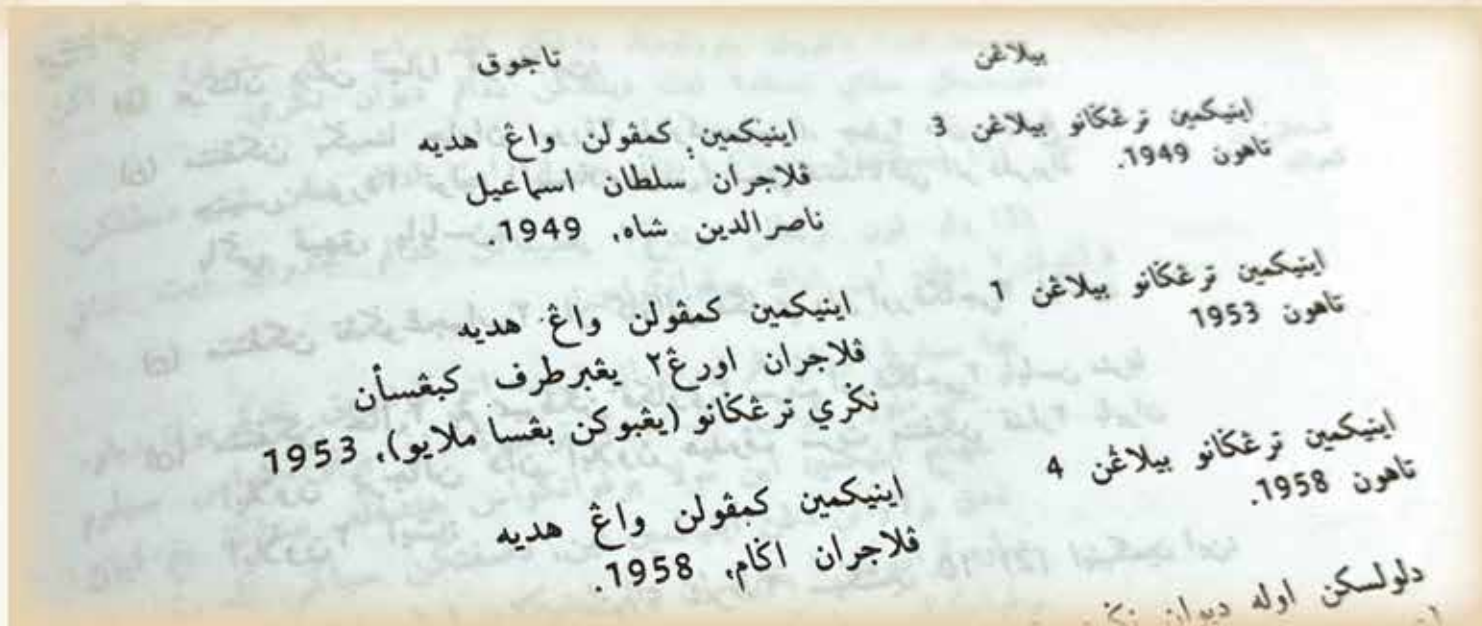 بيلاڠن	تاجوق
اينيكمين ترڠݢانو بيلاڠن 3
تاهون 1949.
اينيكمين کمڤولن واڠ هديه
ڤلاجران سلطان اسماعيل
ناصرالدين شاه، 1949.
اينيكمين ترڠݢانو بيلاڠن 1
تاهون 1953
اينيكمين كمڤولن واڠ هديه
ڤلاجران اورڠ٢ يڠبرطرف كبڠسأن
نݢري ترڠݢانو (يڠبوكن بڠسا ملايو)، 1953
اينيكمين ترڠݢانو بيلاڠن 4
تاهون 1958.
اينيكمين كمڤولن واڠ هديه
ڤلاجران اݢام، 1958.
دلولسكن اوله ديوان